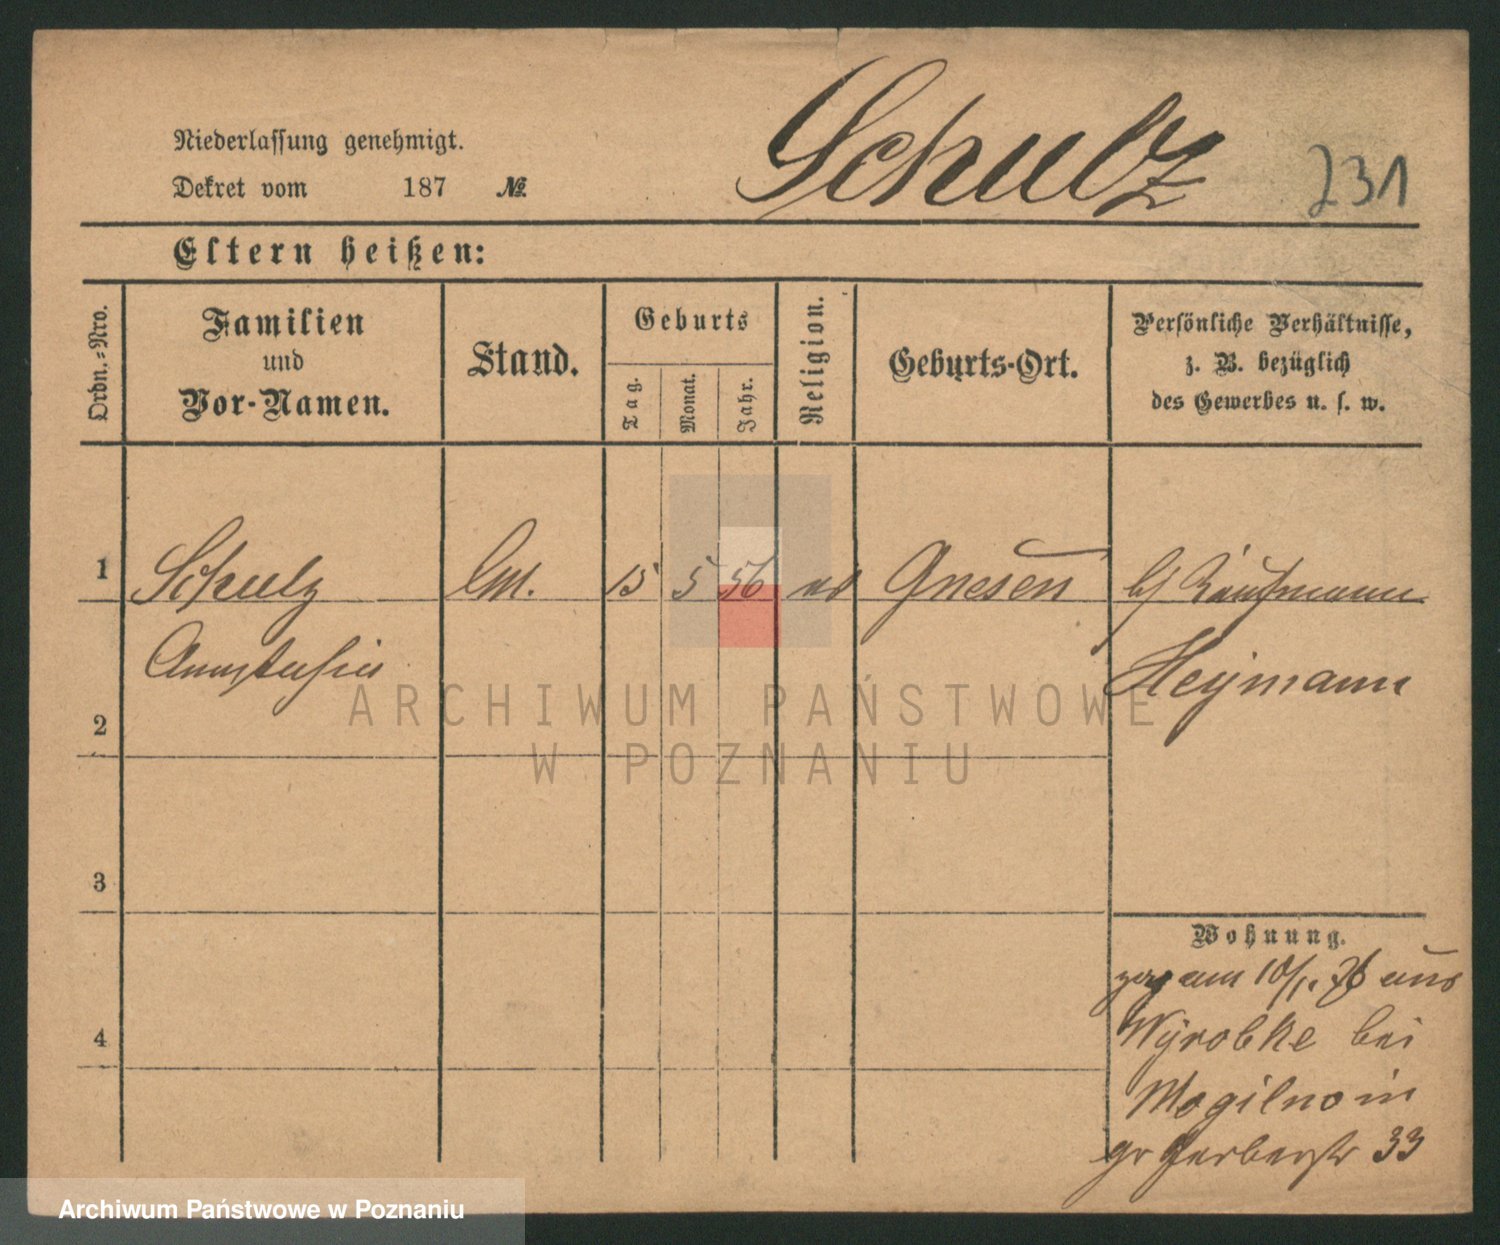 Schulz 231
Niederlassung genehmigt.
Dekret vom 187 №
Eltern heißen:
Ordn.-Nro.
Familien
und
Vor-Namen.
Stand.
Geburts
Tag.
Monat.
Jahr.
Religion.
Geburts-Ort.
Persönliche Verhältnisse,
z. B. bezüglich
des Gewerbes u. s. w.
1 Schulz 15 5 56 Gnesen Kaufmann
Anastasia Heymann
2
3
4
Wohnung.
zog am 10/1. 76 aus
Wyrobke bei
Mogilno in
gr Gerberstr 33
ARCHIWUM PAŃSTWOWE
W POZNANIU
Archiwum Państwowe w Poznaniu